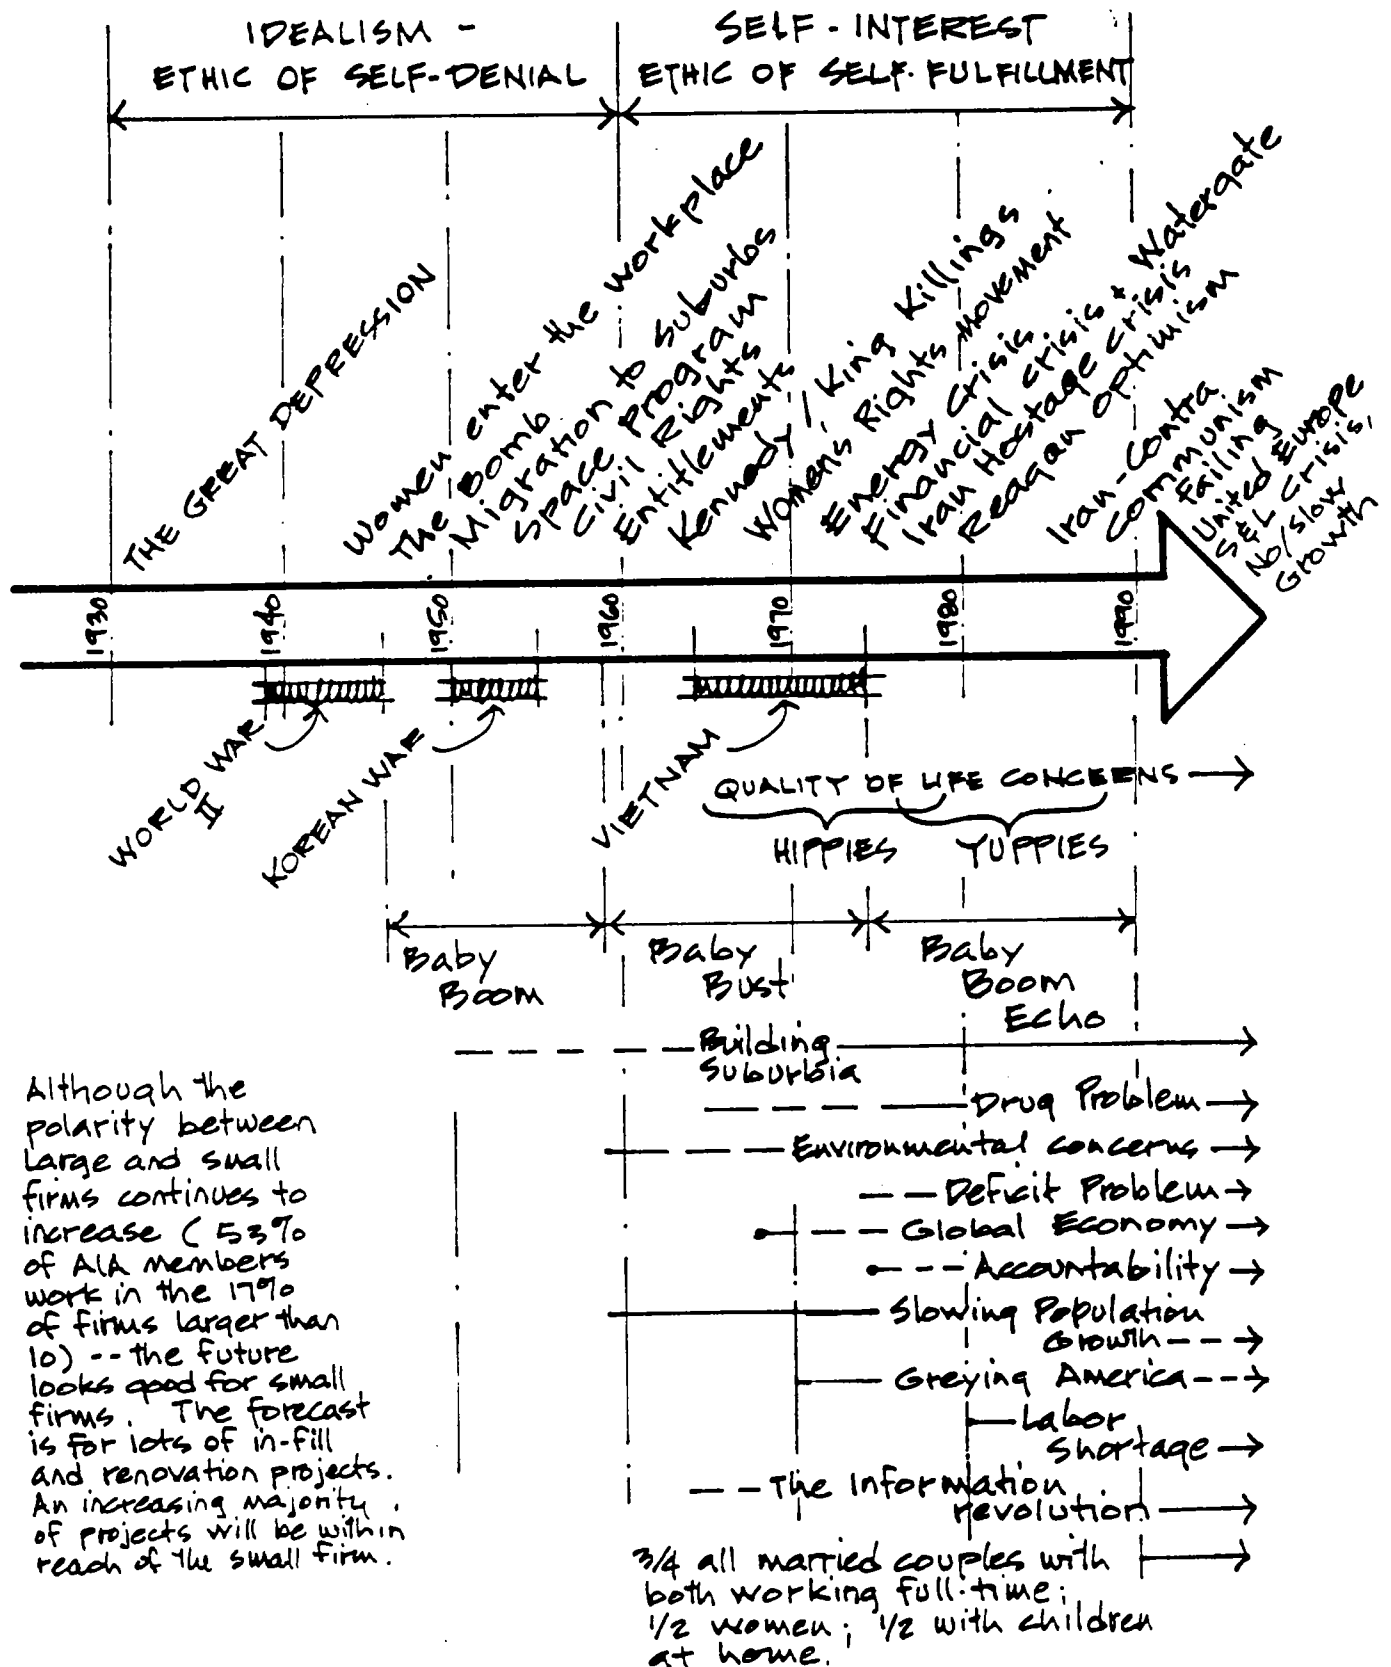 IDEALISM -
ETHIC OF SELF-DENIAL
SELF-INTEREST
ETHIC OF SELF-FULFILLMENT
THE GREAT DEPRESSION
Women enter the workplace
The Bomb
Migration to Suburbs
Space Program
Civil Rights
Entitlements
Kennedy / King Killings
Womens Rights Movement
Energy Crisis
Financial crisis + Watergate
Iran Hostage crisis
Reagan Optimism
Iran-Contra
Communism
Failing
United Europe
S&L Crisis,
No/Slow
Growth
1930
1940
1950
1960
1970
1980
1990
WORLD WAR
II
KOREAN WAR
VIETNAM
QUALITY OF LIFE CONCERNS
HIPPIES
YUPPIES
Baby
Boom
Baby
Bust
Baby
Boom
Echo
Building
Suburbia
Drug Problem
Environmental concerns
Deficit Problem
Global Economy
Accountability
Slowing Population
Growth
Greying America
Labor
Shortage
The Information
revolution
3/4 all married couples with
both working full-time;
1/2 women; 1/2 with children
at home.
Although the
polarity between
Large and small
firms continues to
increase (53%
of AIA members
work in the 17%
of firms larger than
10) -- the future
looks good for small
firms. The forecast
is for lots of in-fill
and renovation projects.
An increasing majority
of projects will be within
reach of the small firm.